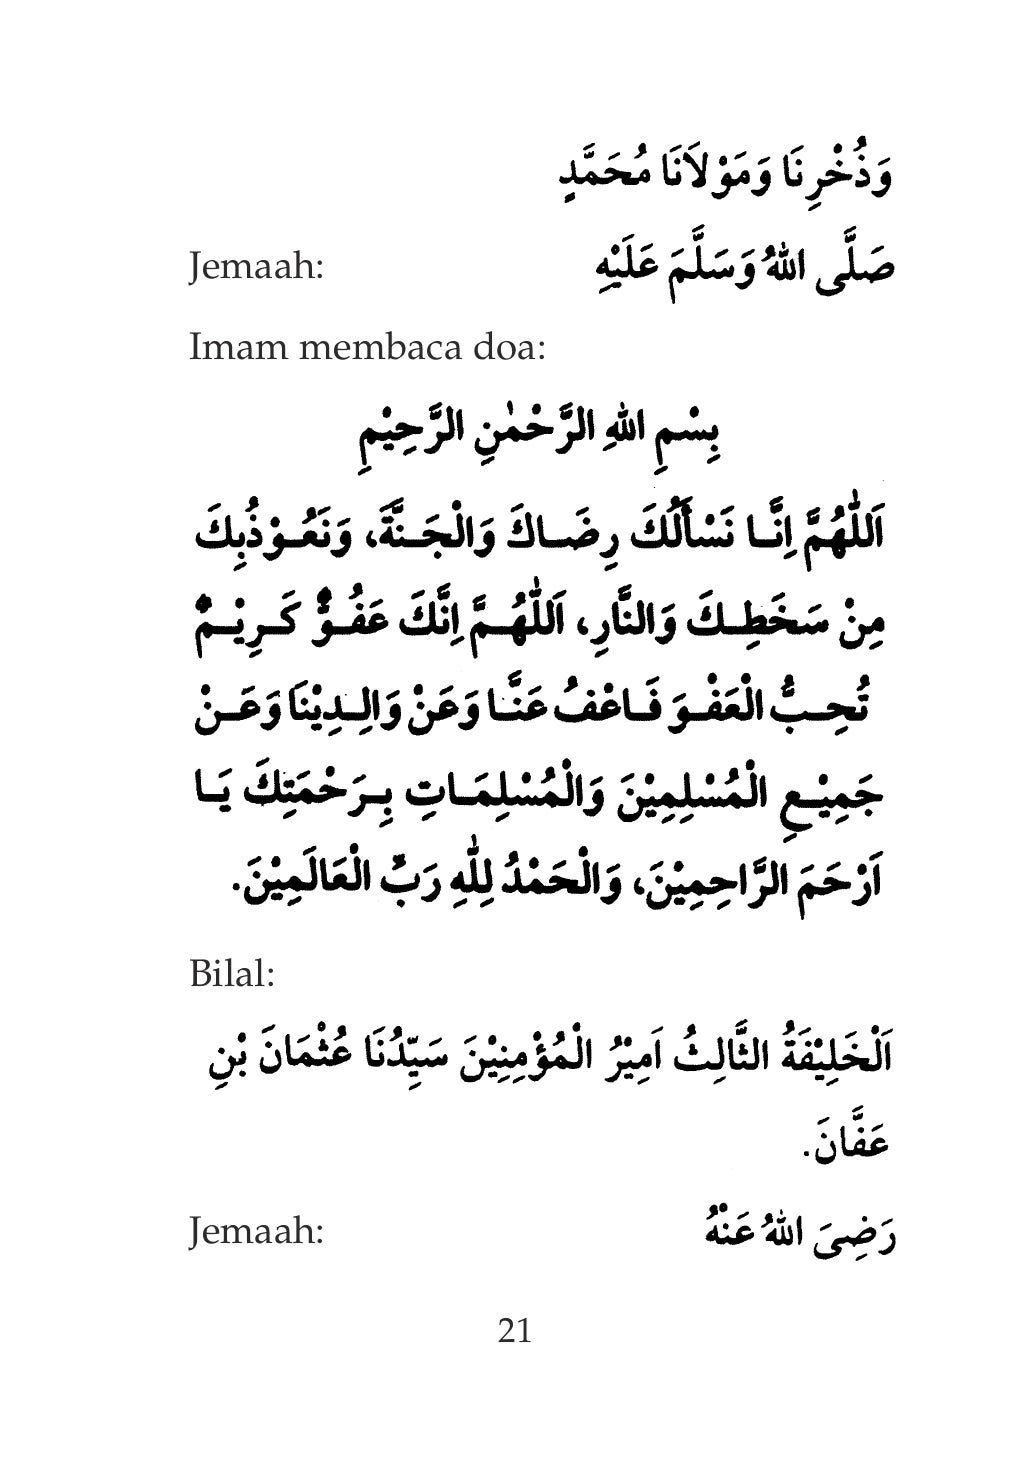 وَذُخْرِنَا وَمَوْلَانَا مُحَمَّدٍ
Jemaah: صَلَّى اللهُ وَسَلَّمَ عَلَيْهِ
Imam membaca doa:
بِسْمِ اللهِ الرَّحْمٰنِ الرَّحِيْمِ
اَللّٰهُمَّ اِنَّـا نَسْأَلُكَ رِضَـاكَ وَالْجَـنَّةَ، وَنَعُـوْذُبِكَ
مِنْ سَخَطِـكَ وَالنَّارِ، اَللّٰهُـمَّ اِنَّكَ عَفُـوٌّ كَـرِيْـمٌ
تُحِـبُّ الْعَفْـوَ فَـاعْفُ عَنَّـا وَعَنْ وَالِـدِيْنَا وَعَـنْ
جَمِيْـعِ الْمُسْلِمِيْنَ وَالْمُسْلِمَـاتِ بِـرَحْمَتِكَ يَـا
اَرْحَمَ الرَّاحِمِيْنَ، وَالْحَمْدُ لِلّٰهِ رَبِّ الْعَالَمِيْنَ.
Bilal:
اَلْخَلِيْفَةُ الثَّالِثُ اَمِيْرُ الْمُؤْمِنِيْنَ سَيِّدُنَا عُثْمَانَ بْنِ
عَفَّانَ.
Jemaah: رَضِيَ اللهُ عَنْهُ
21